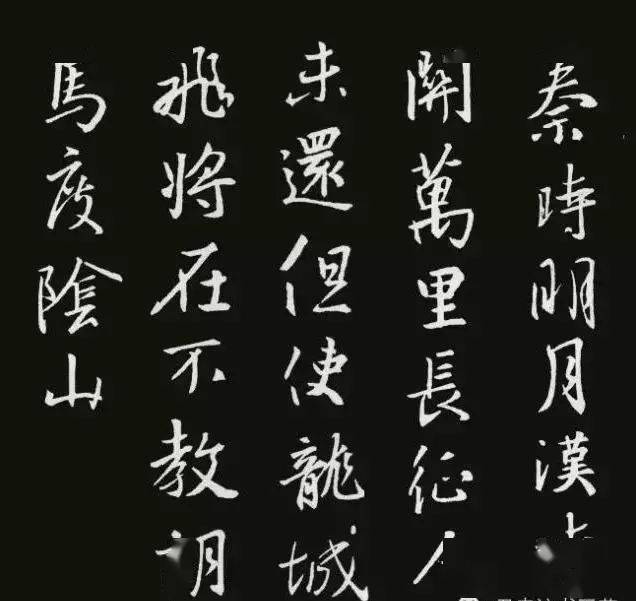 秦時明月漢
關萬里長征人
未還但使龍城
飛將在不教胡
馬度陰山